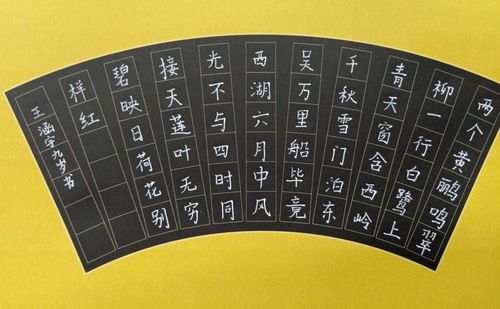 两个黄鹂鸣翠
柳一行白鹭上
青天窗含西岭
千秋雪门泊东
吴万里船毕竟
西湖六月中风
光不与四时同
接天莲叶无穷
碧映日荷花别
样红
王涵宇九岁书